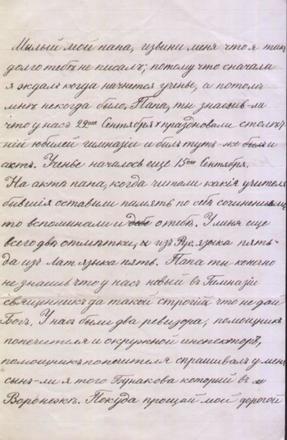 Милый мой папа, извини меня что я такъ
долго тебѣ не писалъ, потому что сначала
я ждалъ когда начнется ученье, а потомъ
мнѣ некогда было. Папа, ты знаешь-ли
что у насъ 22го Сентября праздновали столѣт-
ній юбилей гимназіи и былъ тутъ-же
актъ. Ученье началось еще 15го Сентября.
На актѣ папа, когда читали какіе учителя
бывшіе оставили память по себѣ сочиненіями,
то вспоминали и о тебѣ. У меня еще
всего двѣ отмѣтки, изъ Рус. языка пять
да изъ Лат. языка пять. Папа ты конечно
не знаешь что у насъ новый въ Гимназіи
священникъ да такой строгій что не дай
Богъ. У насъ были два ревизора, помощникъ
попечителя и окружной инспекторъ,
помощникъ попечителя спрашивалъ у меня,
сынъ-ли я того Бунакова который въ
Воронежѣ. Покуда прощай мой дорогой